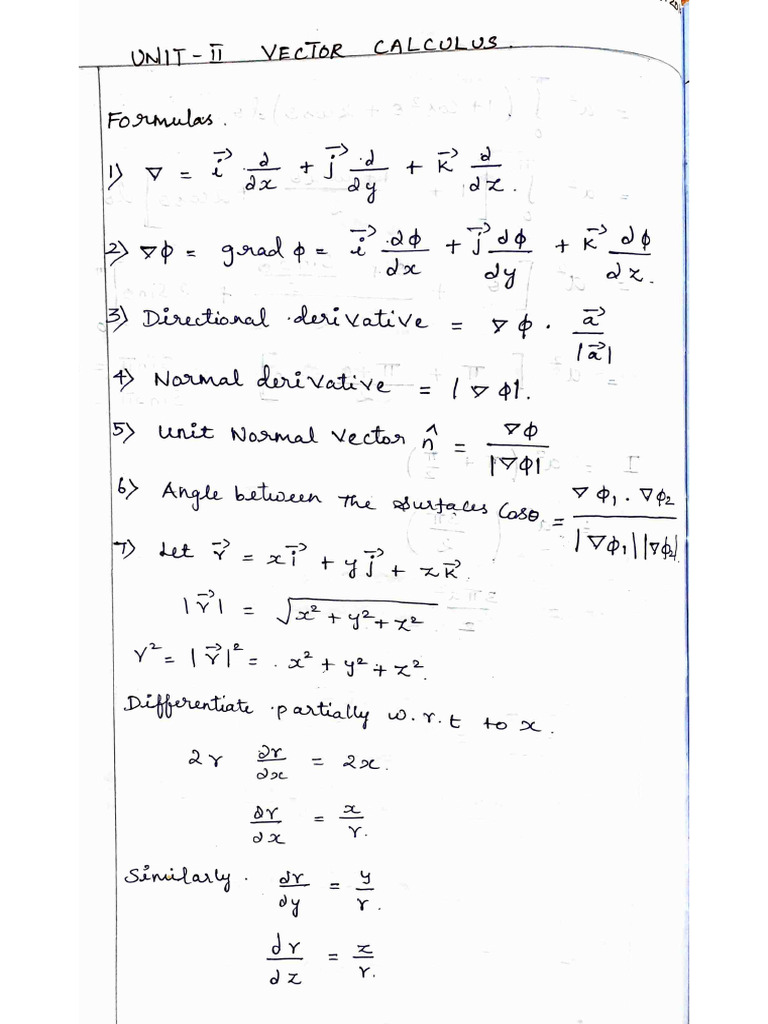 UNIT-II VECTOR CALCULUS.
Formulas.
1) ∇ = i⃗ ∂/∂x + j⃗ ∂/∂y + k⃗ ∂/∂z.
2) ∇φ = grad φ = i⃗ ∂φ/∂x + j⃗ ∂φ/∂y + k⃗ ∂φ/∂z.
3) Directional derivative = ∇φ · a⃗/|a⃗|
4) Normal derivative = |∇φ|.
5) Unit Normal Vector n̂ = ∇φ/|∇φ|
6) Angle between the surfaces Cosθ = ∇φ₁ · ∇φ₂/|∇φ₁||∇φ₂|
7) Let r⃗ = xi⃗ + yj⃗ + zk⃗.
|r⃗| = √(x² + y² + z²)
r² = |r⃗|² = x² + y² + z².
Differentiate partially w.r.t to x.
2r ∂r/∂x = 2x.
∂r/∂x = x/r.
Similarly. ∂r/∂y = y/r.
∂r/∂z = z/r.